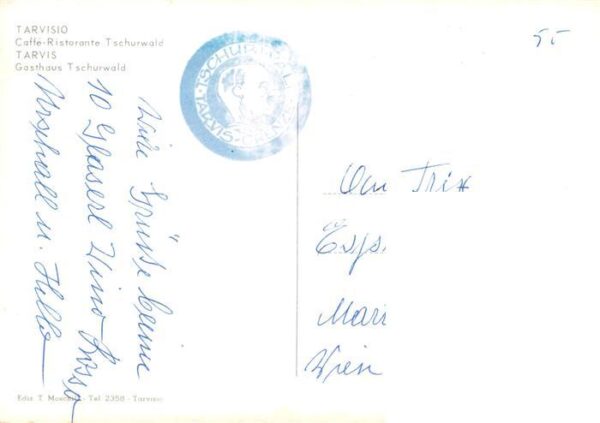 TARVISIO
Caffè-Ristorante Tschurwald
TARVIS
Gasthaus Tschurwald
55
TSCHURWALD
TARVIS
Viele Grüsse beim
10 Glaserl Vino Rosso
u. Hella
Trix
Mari
Wien
Ediz. T. - Tel 2358 - Tarvisio